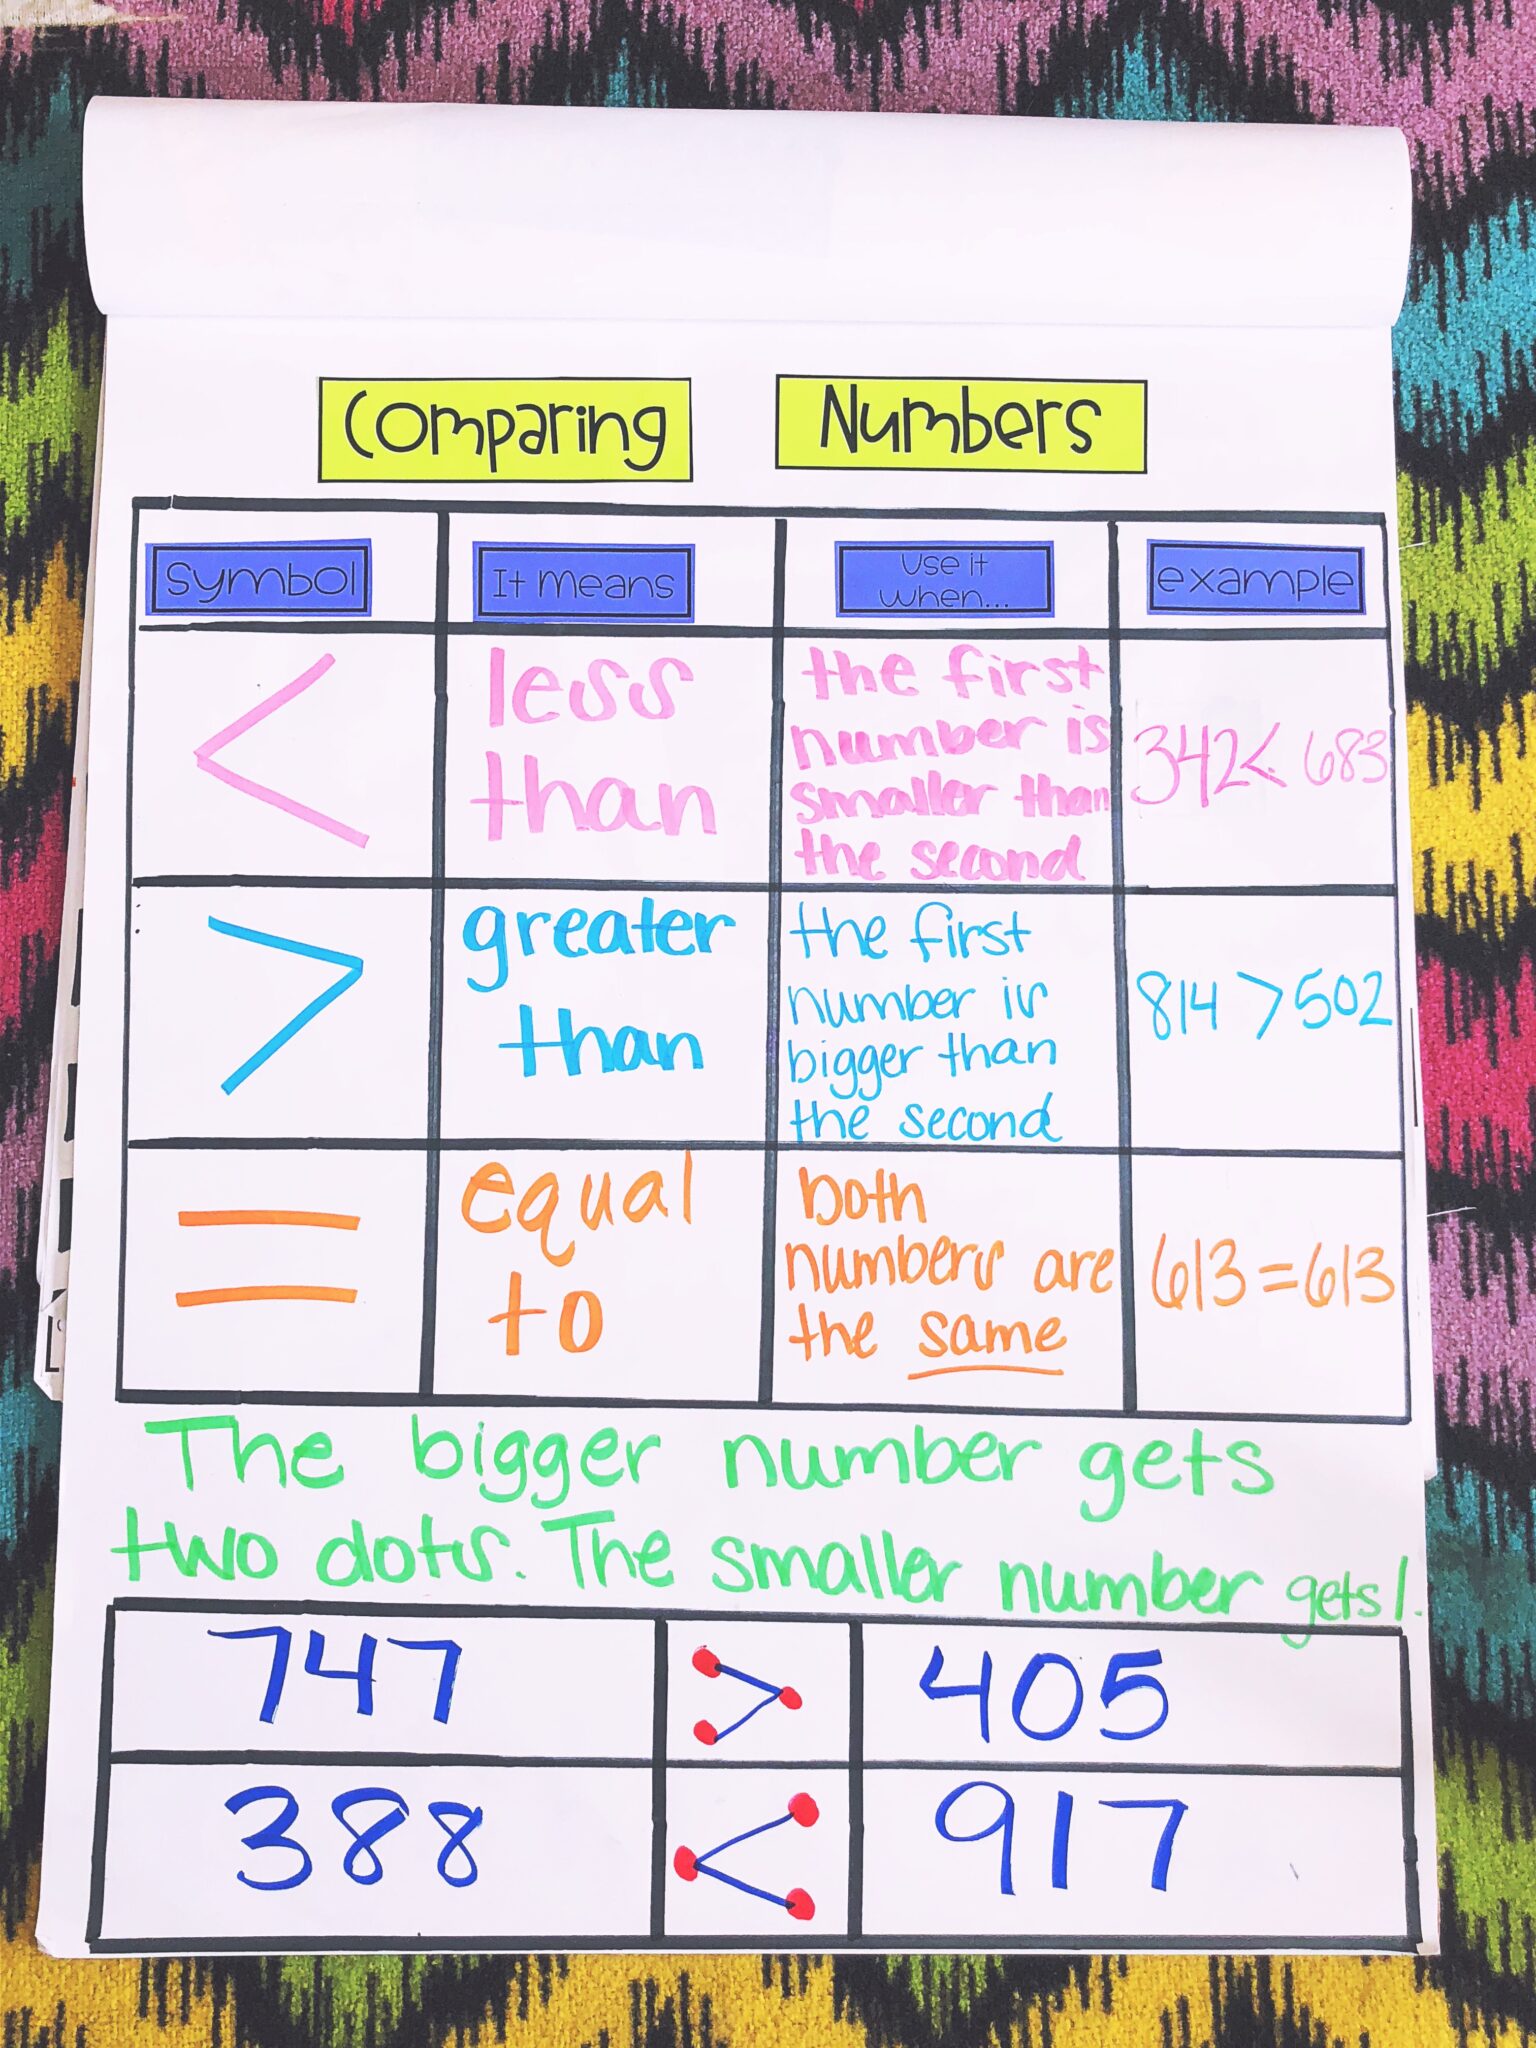 Comparing Numbers
symbol
It means
Use it
when...
example
<
less
than
the first
number is
smaller than
the second
342 < 683
>
greater
than
the first
number is
bigger than
the second
814 > 502
=
equal
to
both
numbers are
the same
613 = 613
The bigger number gets
two dots. The smaller number gets 1.
747 > 405
388 < 917